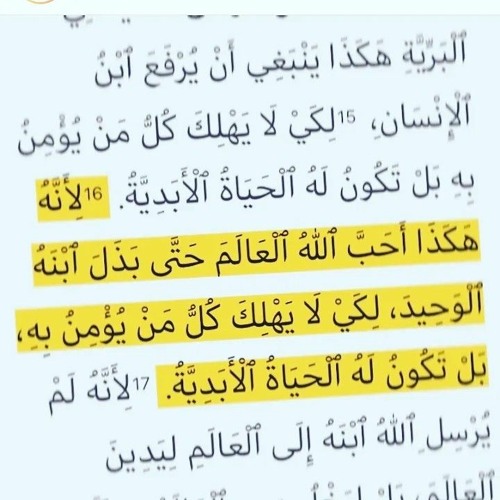 ٱلْبَرِّيَّةِ هَكَذَا يَنْبَغِي أَنْ يُرْفَعَ ٱبْنُ
ٱلْإِنْسَانِ، 15لِكَيْ لَا يَهْلِكَ كُلُّ مَنْ يُؤْمِنُ
بِهِ بَلْ تَكُونُ لَهُ ٱلْحَيَاةُ ٱلْأَبَدِيَّةُ. 16لِأَنَّهُ
هَكَذَا أَحَبَّ ٱللهُ ٱلْعَالَمَ حَتَّى بَذَلَ ٱبْنَهُ
ٱلْوَحِيدَ، لِكَيْ لَا يَهْلِكَ كُلُّ مَنْ يُؤْمِنُ بِهِ،
بَلْ تَكُونُ لَهُ ٱلْحَيَاةُ ٱلْأَبَدِيَّةُ. 17لِأَنَّهُ لَمْ
يُرْسِلِ ٱللهُ ٱبْنَهُ إِلَى ٱلْعَالَمِ لِيَدِينَ
ٱلْعَالَمَ، بَلْ